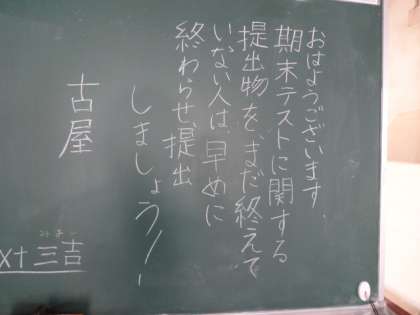 おはようございます。
期末テストに関する
提出物を、まだ終えて
いない人は、早めに
終わらせ、提出
しましょう!
古屋
三吉